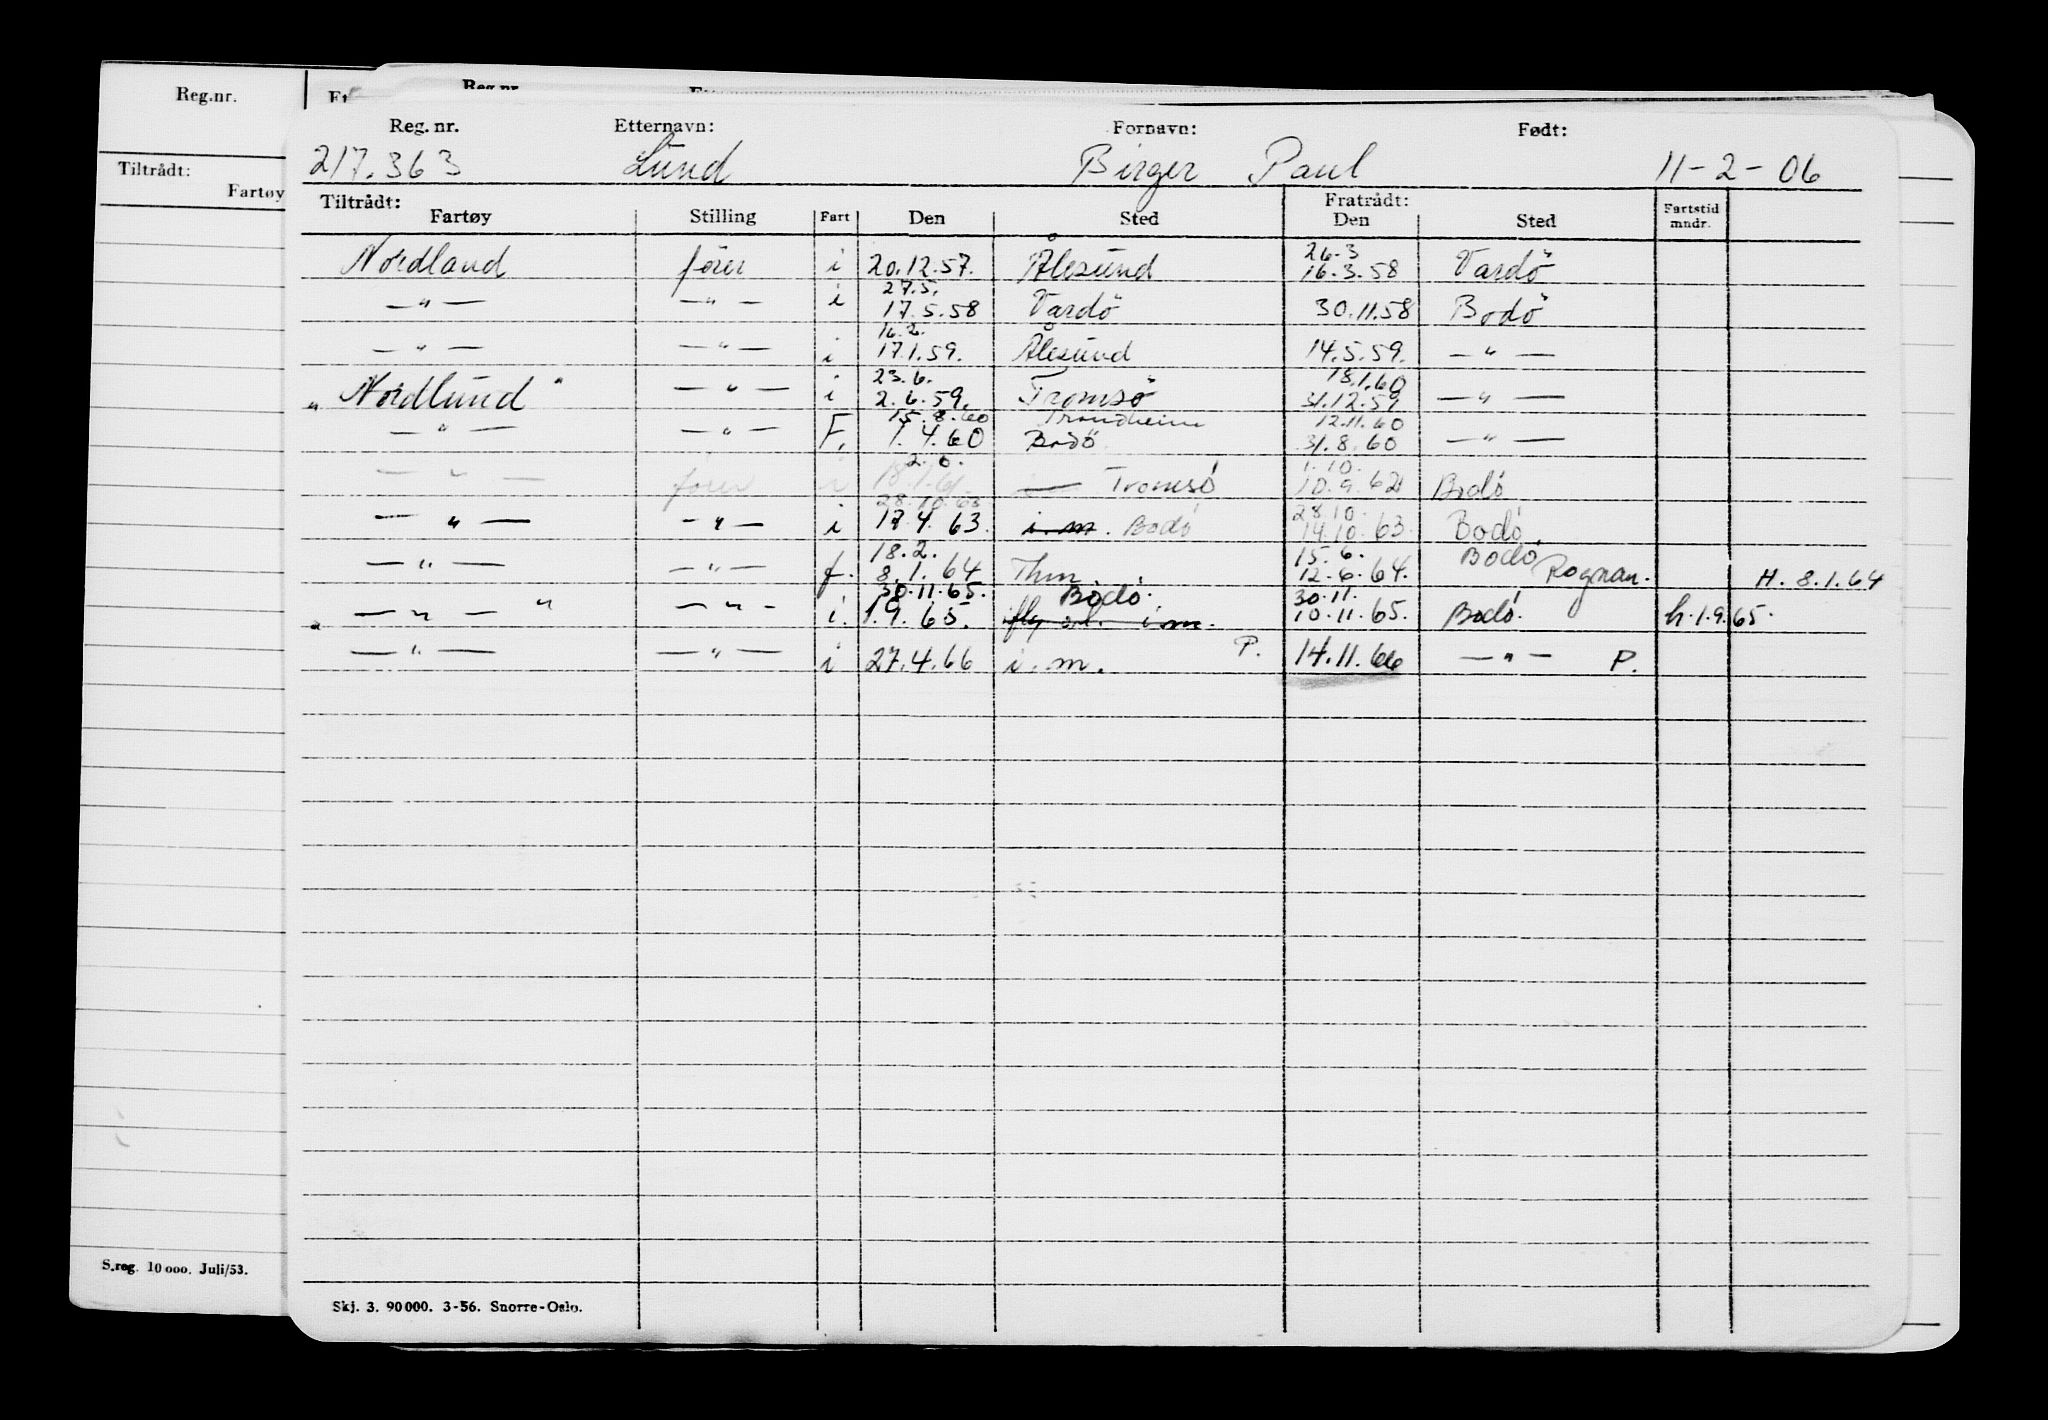 Reg.nr.
Tiltrådt:
Fartøy
S.reg. 10 000. Juli/53.
Reg. nr. Etternavn: Fornavn: Født:
217.363 Lund Birger Paul 11-2-06
Tiltrådt: Fratrådt:
Fartøy Stilling Fart Den Sted Den Sted Fartstid mndr.
26.3
Nordland fører i 20.12.57. Ålesund 16.3.58 Vardö
27.5.
—"— —"— i 17.5.58 Vardö 30.11.58 Bodö
16.2.
—"— —"— i 17.1.59. Ålesund 14.5.59. —"—
23.6. 18.1.60
"Nordlund" —"— i 2.6.59. Tromsö 31.12.59 —"—
15.8.60 Trondheim 12.11.60
—"— —"— F. 1.4.60 Bodö 31.8.60 —"—
1.10.
—"— fører i 18.1.61 Tromsö 10.9.62 Bodö
28.10.63 28.10.
—"— —"— i 17.4.63. i.m. Bodö 14.10.63. Bodö.
18.2. 15.6. Bodö
—"— —"— f. 8.1.64 Thm. 12.6.64. Rognan. H. 8.1.64
30.11.65. Bodö. 30.11.
"—"—" —"— i. 1.9.65. i.m. 10.11.65. Bodö. h.1.9.65.
—"— —"— i 27.4.66 i.m. P. 14.11.66 —"— P.
Skj. 3. 90 000. 3-56. Snorre-Oslo.